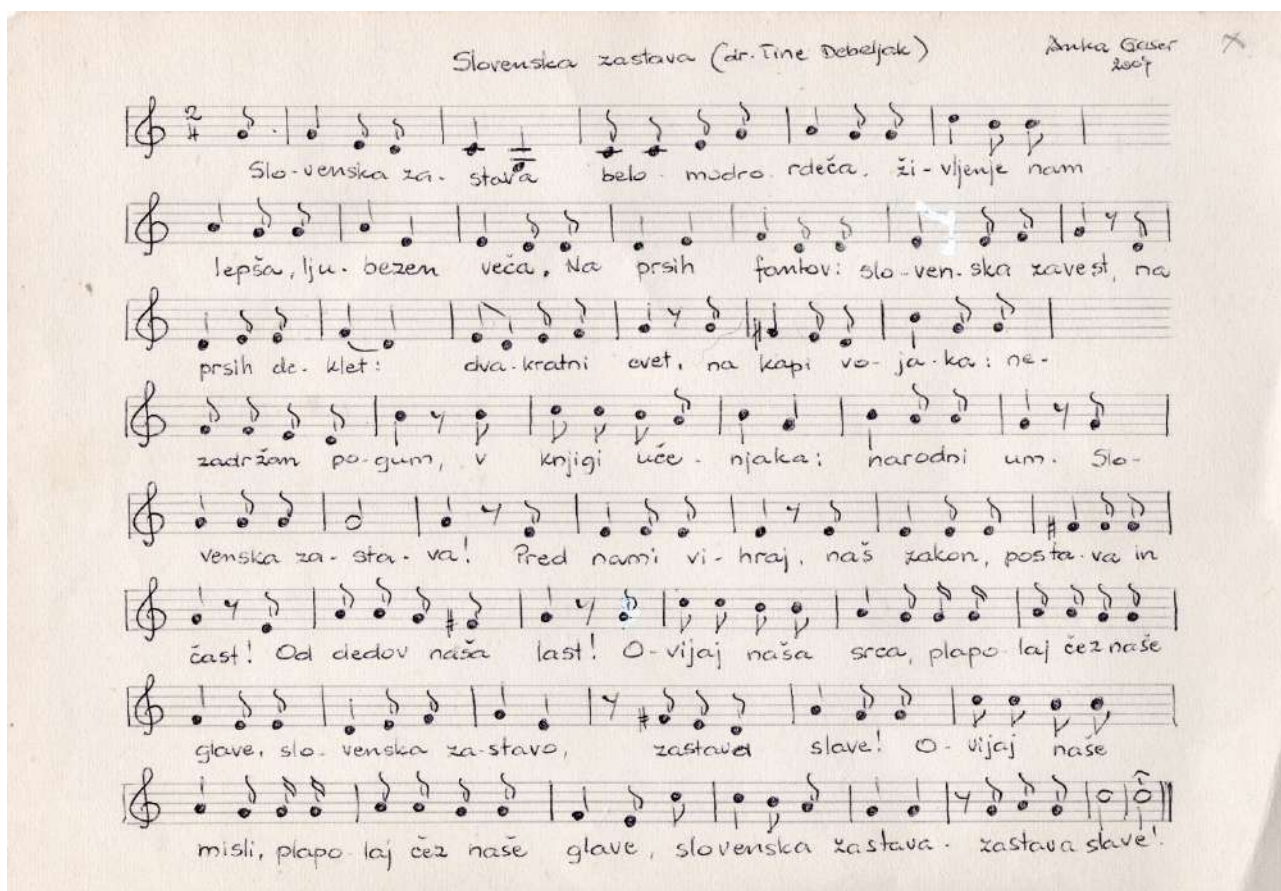 Slovenska zastava (dr. Tine Debeljak)
Anka Gaser
2007
2
4
Slo-venska za-stava belo-modro-rdeča. ži-vljenje nam
lepša, lju-bezen veča. Na prsih fantov: slo-ven-ska zavest, na
prsih de-klet: dva-kratni cvet, na kapi vo-ja-ka: ne-
zadržan po-gum, v knjigi uče-njaka: narodni um. Slo-
venska za-sta-va! Pred nami vi-hraj, naš zakon, posta-va in
čast! Od dedov naša last! O-vijaj naša srca, plapo-laj čez naše
glave, slo-venska za-stavo, zastava slave! O-vijaj naše
misli, plapo-laj čez naše glave, slovenska zastava. zastava slave!